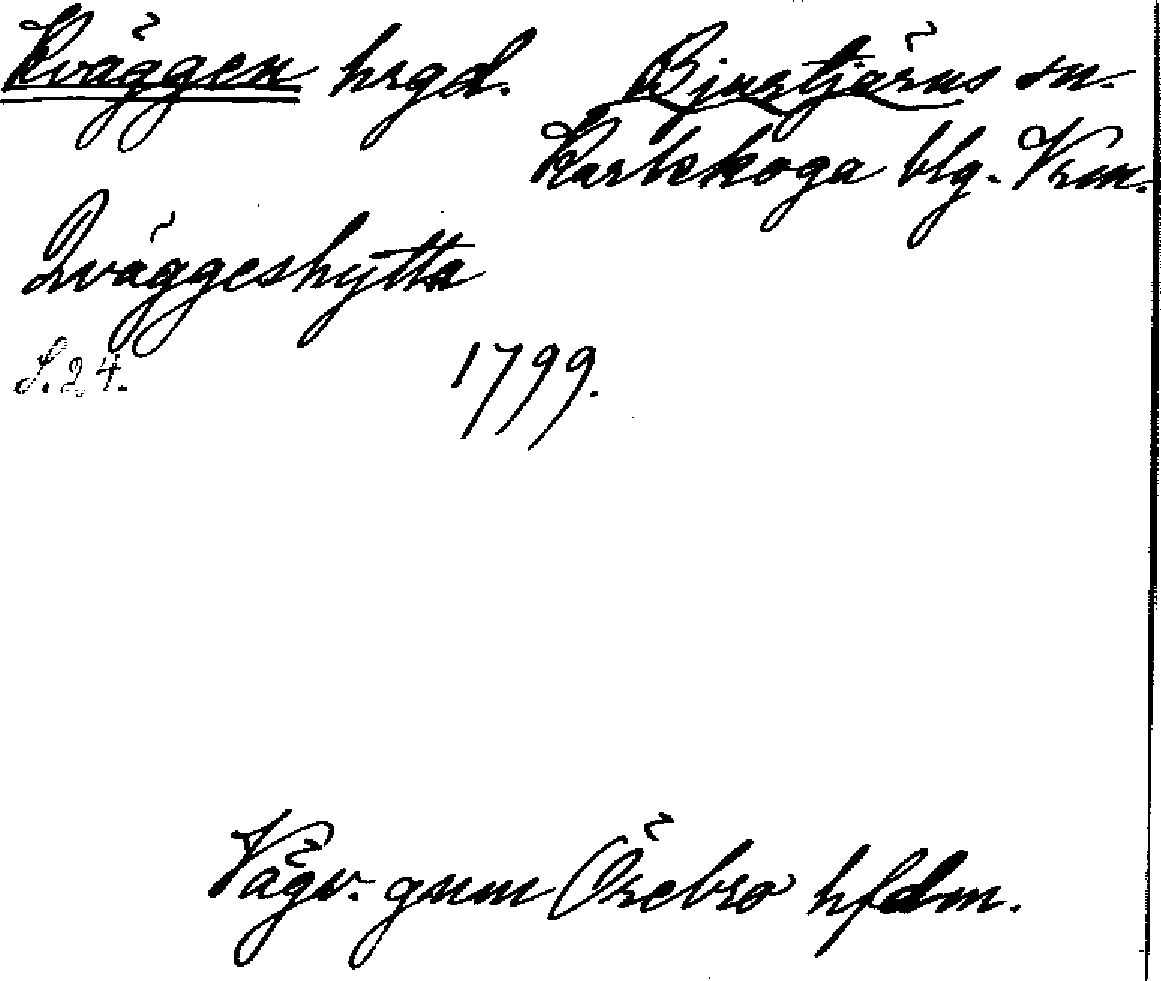 Kväggen hrgd. Bjurtjärns sn.
Karlskoga blg. Vrm.
Qväggeshytta
S. 24. 1799.
Vägv. gnm Örebro hfdm.